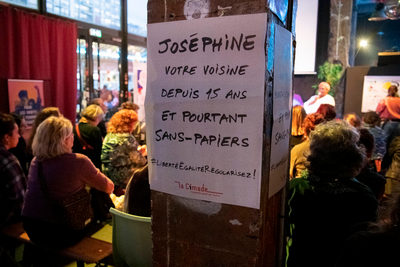 JOSÉPHINE
VOTRE VOISINE
DEPUIS 15 ANS
ET POURTANT
SANS-PAPIERS
#LIBERTÉEGALITÉRÉGULARISEZ!
la Cimade